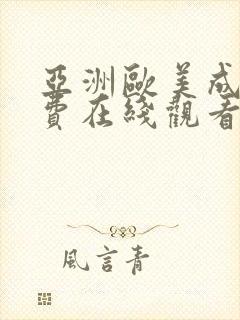 亞洲歐美成
費在綫觀看
風言青